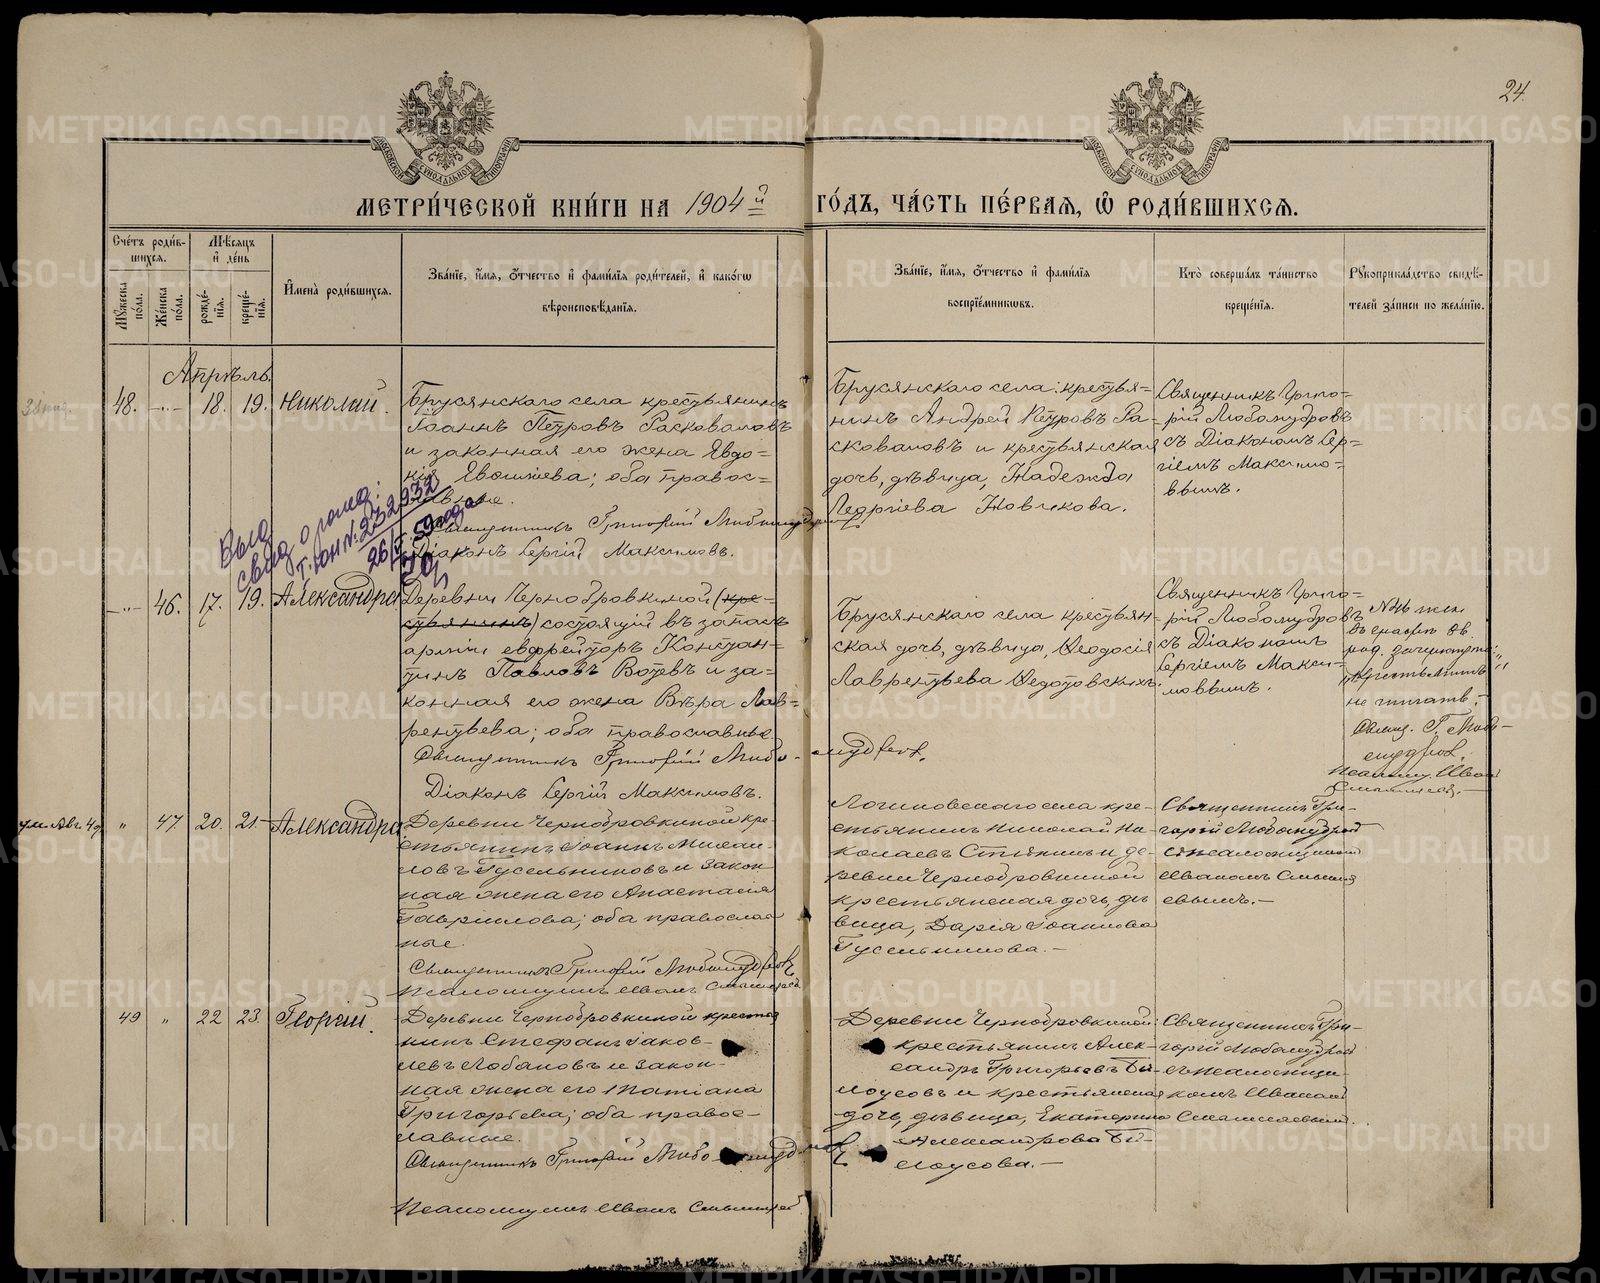 24.
МЕТРИ́ЧЕСКОЙ КНИ́ГИ НА 1904й ГО́ДЪ, ЧА́СТЬ ПЕ́РВАЯ, Ѽ РОДИ́ВШИХСЯ.
Сче́тъ роди́в-
шихся.
Мѣ́сяцъ
и҆ де́нь
Мꙋ́жеска по́ла.
Же́нска по́ла.
рожде́-
нїя.
креще́-
нїя.
И҆мена̀ роди́вшихся.
Зва́нїе, и҆́мя, ѻ҆́тчество и҆ фами́лїя роди́телей, и҆ како́гѡ
вѣроисповѣ́данїя.
Зва́нїе, и҆́мя, ѻ҆́тчество и҆ фами́лїя
воспрїе́мникѡвъ.
Кто̀ соверша́лъ та́инство
креще́нїя.
Рꙋкоприкла́дство свидѣ́-
телей за́писи по жела́нїю.
Апрѣль.
48. -„- 18. 19. Николай.
Брусянскаго села крестьянинъ
Іоаннъ Петровъ Расковаловъ
и законная его жена Евдо=
кія ; оба правос=
лавные.
Священникъ Григорій Любомудровъ
Діаконъ Сергій Максимовъ.
Брусянскаго села: крестья=
нинъ Андрей Петровъ Ра=
сковаловъ и крестьянская
дочь, дѣвица, Надежда
Георгіева Новикова.
Священникъ Григо=
рій Любомудровъ
съ Діакономъ Сер=
гіемъ Максимо=
вымъ.
Выд
свид о рожд:
№ 232932
59 года
-„- 46. 17. 19. Александра
Деревни Чернобровкиной (кре=
стьянинъ) состоящій въ запасѣ
арміи ефрейторъ Констан=
тинъ Павловъ Вотевъ и за=
конная его жена Вѣра Лав=
рентьева; оба православные
Священникъ Григорій Любомудровъ.
Діаконъ Сергій Максимовъ.
Брусянскаго села крестьян=
ская дочь, дѣвица, Ѳеодосія
Лаврентьева Ѳедотовскихъ.
Священникъ Григо=
рій Любомудровъ
съ Діакономъ
Сергіемъ Макси=
мовымъ.
№ 46 жен.
зачеркнутое
„крестьянинъ“
не читать.
Священ. Г. Любо-
мудровъ.
Псаломщ. Иван
47 20. 21. Александра.
Деревни Чернобровкиной кре-
стьянинъ Іоаннъ Михаи-
ловъ Гусельниковъ и закон-
ная жена его Анастасія
Гавріилова; оба православ
ные.
Священникъ Григорій Любомудровъ
Псаломщикъ Иванъ
Логиновскаго села кре-
стьянинъ Николай Ни-
колаевъ и де-
ревни Чернобровкиной
крестьянская дочь, дѣ-
вица, Дарія Іоаннова
Гусельникова.-
Священникъ Гри-
горій Любомудровъ
съ псаломщикомъ
Иваномъ
49 „ 22 23. Георгій.
Деревни Чернобровкиной крестья
нинъ Стефанъ Іаков-
левъ Лобановъ и закон-
ная жена его Татіана
Григорьева; оба правос-
лавные.
Священникъ Григорій Любомудровъ
Псаломщикъ Иванъ
Деревни Чернобровкиной
крестьянинъ Алек-
сандръ Григорьевъ Бѣ-
лоусовъ и крестьянская
дочь, дѣвица, Екатерина
Александрова Бѣ-
лоусова.-
Священникъ Гри-
горій Любомудровъ
съ псаломщи-
комъ Иваномъ
METRIKI.GASO-URAL.RU